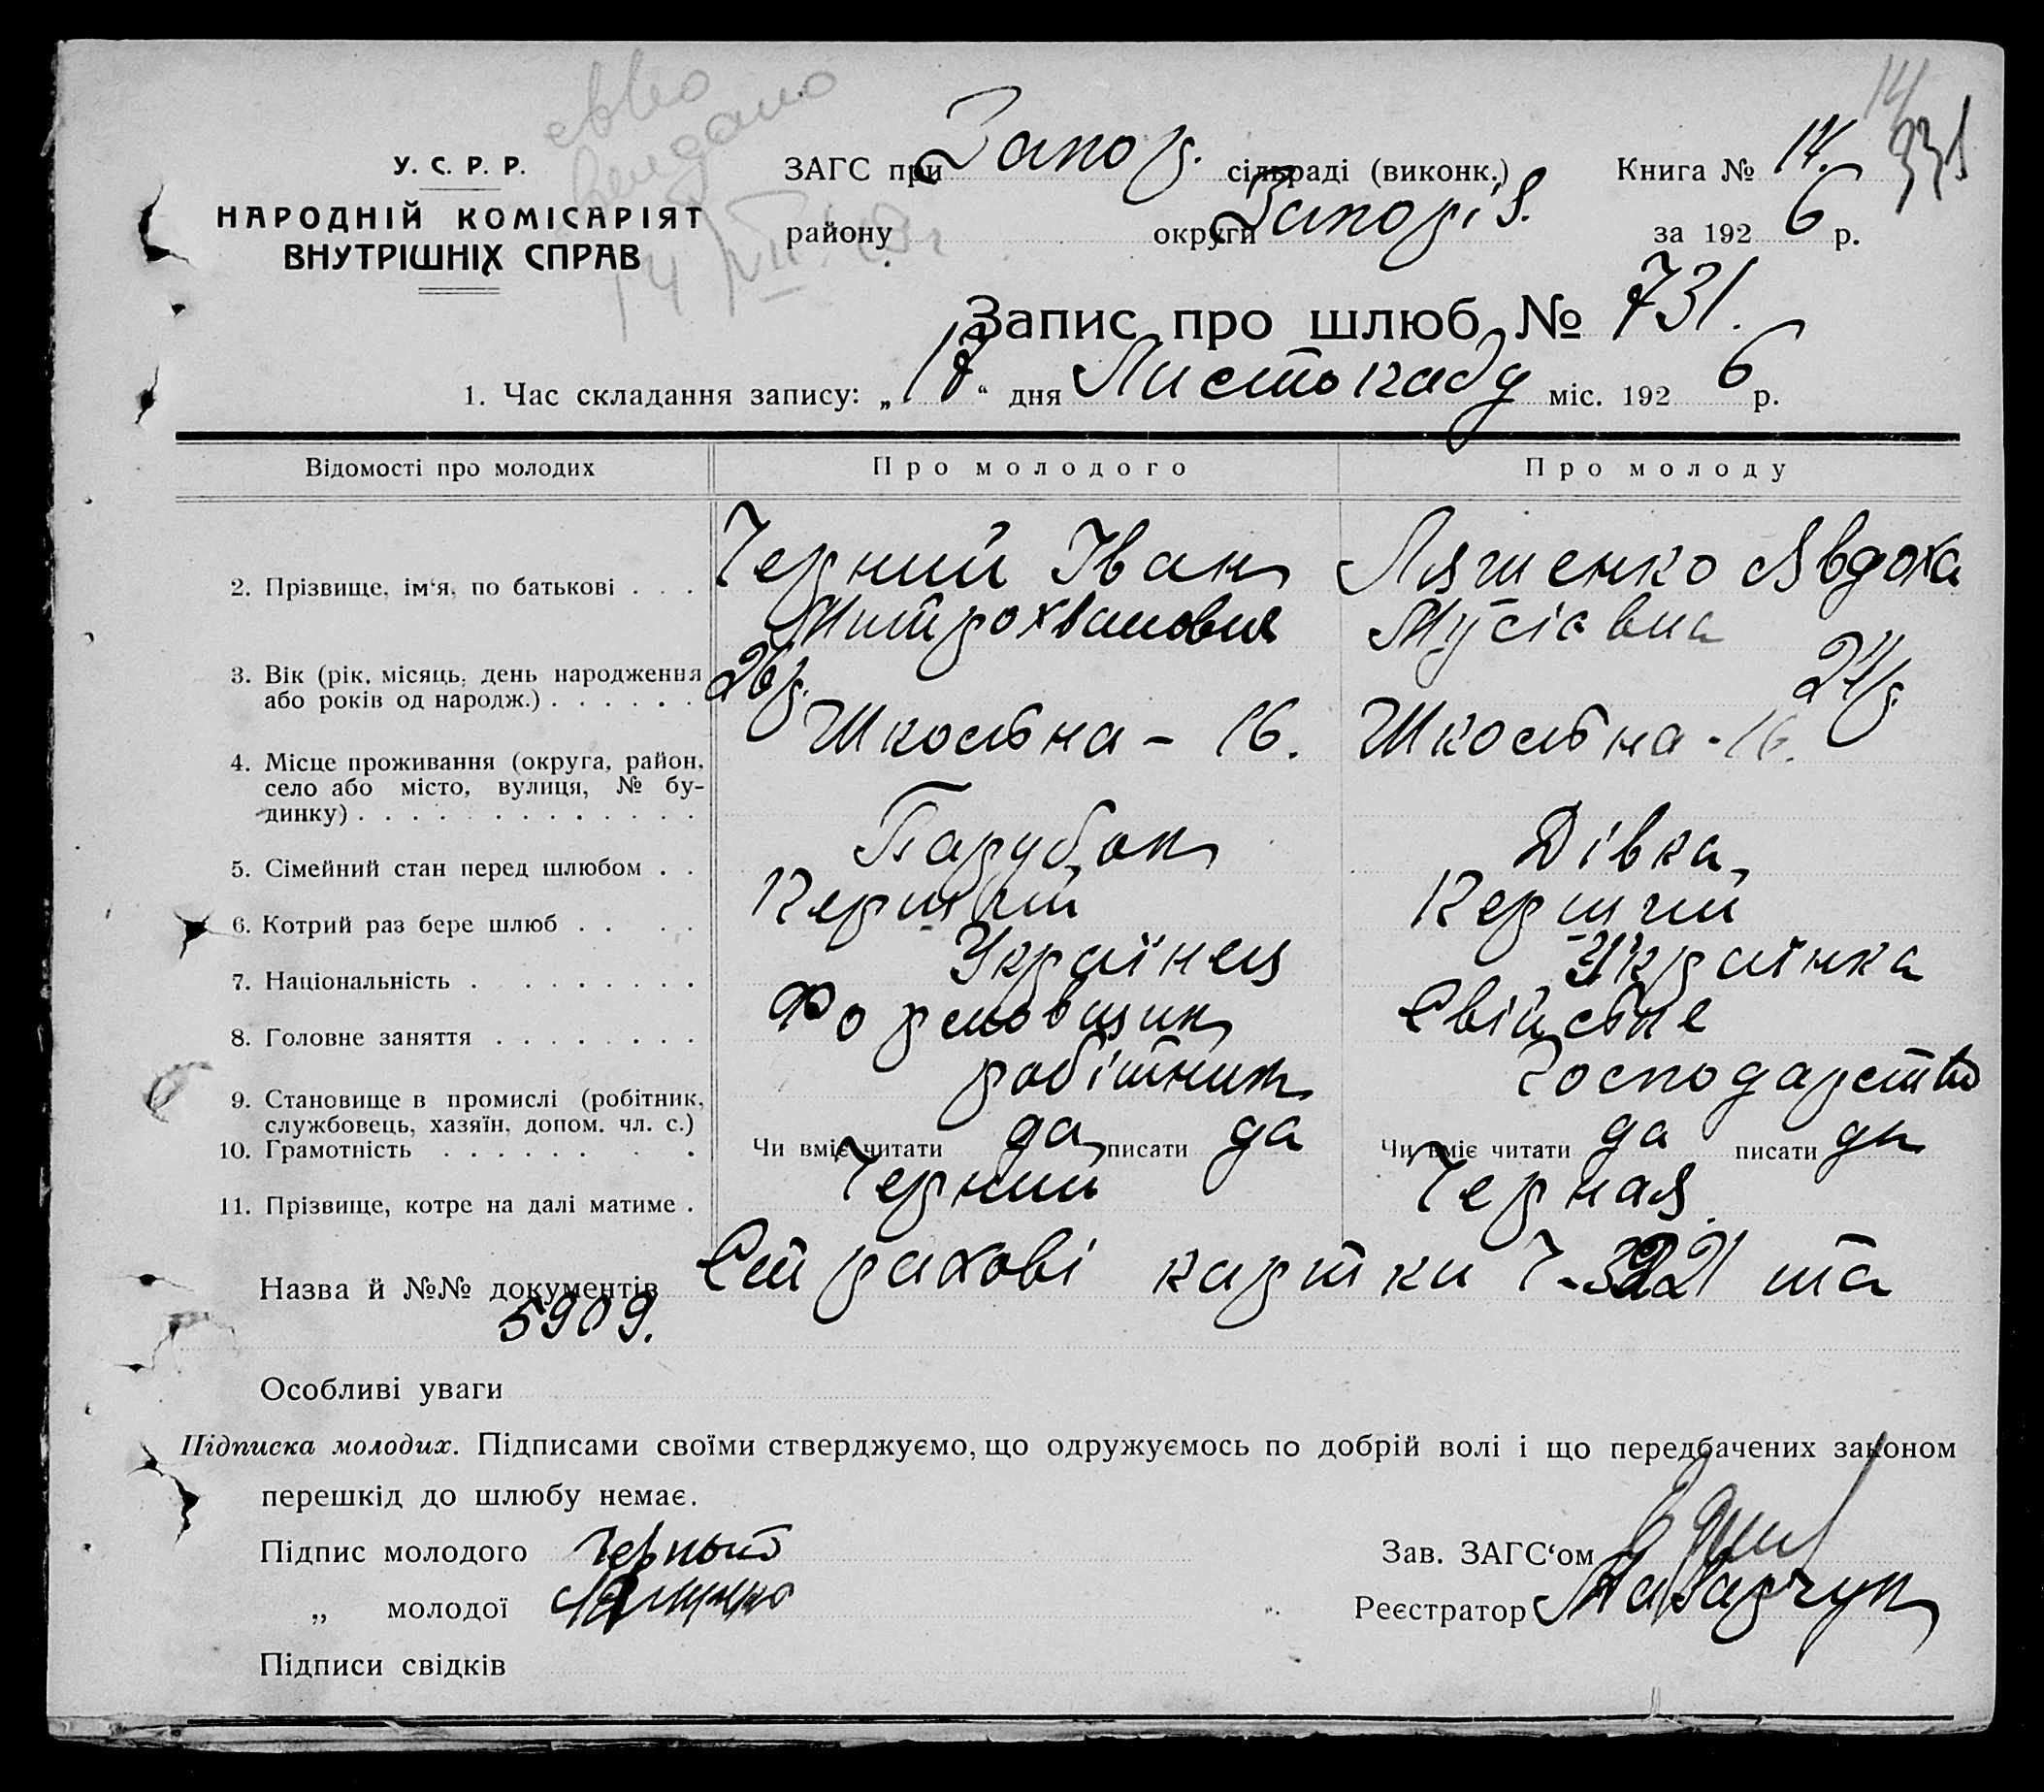 У. С. Р. Р.
НАРОДНІЙ КОМІСАРІЯТ
ВНУТРІШНІХ СПРАВ
ЗАГС при Запор. сільраді (виконк.) Книга № 14.
району округи Запоріз. за 192 6 р.
14
331
Запис про шлюб № 731.
1. Час складання запису: „17“ дня Листопаду міс. 192 6 р.
Відомості про молодих Про молодого Про молоду
2. Прізвище, ім‘я, по батькові . . . Черний Іван Ляшенко Явдоха
Митрохванович Мусіівна
3. Вік (рік, місяць, день народження
або років од народж.) . . . . . . 26 р. 21 р.
4. Місце проживання (округа, район,
село або місто, вулиця, № бу-
динку) . . . . . . . . . . . . . Шкосвна - 16. Шкосвна - 16.
5. Сімейний стан перед шлюбом . . Парубок Дівка
6. Котрий раз бере шлюб . . . . Перший Перший
7. Національність . . . . . . . . . Українец Украінка
8. Головне заняття . . . . . . . . Формовщик Свійське
Господарство
9. Становище в промислі (робітник,
службовець, хазяїн, допом. чл. с.) робітник
10. Грамотність . . . . . . . . . Чи вміє читати да писати да Чи вміє читати да писати да
11. Прізвище, котре на далі матиме . Черний Черная
Назва й №№ документів Страхові картки 7-3221 та
5909.
Особливі уваги
Підписка молодих. Підписами своїми стверджуємо, що одружуємось по добрій волі і що передбачених законом
перешкід до шлюбу немає.
Підпис молодого Черный Зав. ЗАГС‘ом
„ молодої Ляшенко Реєстратор
Підписи свідків